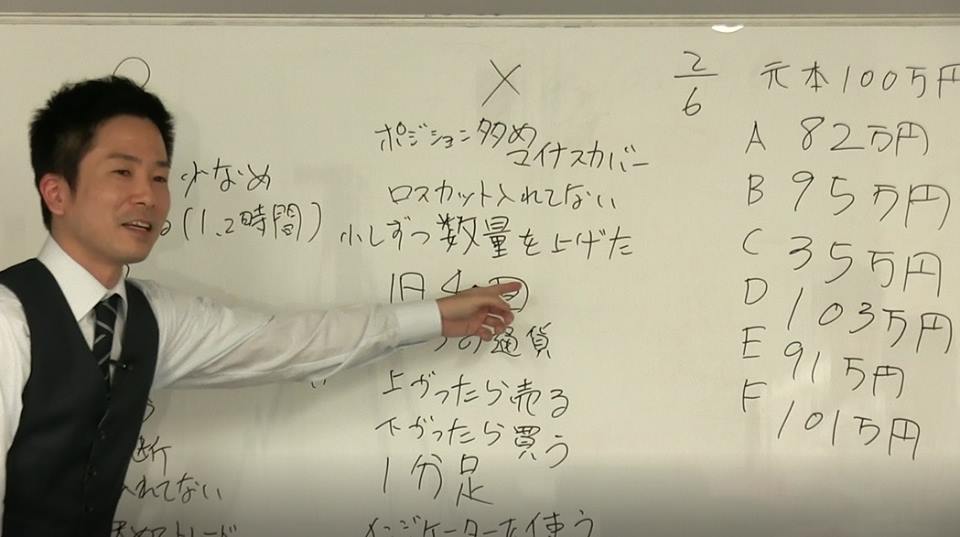 ○
少なめ
(1.2時間)
入れてない
×
ポジション多め
マイナスカバー
ロスカット入れてない
少しずつ数量を上げた
の通貨
上がったら売る
下がったら買う
1分足
インジケーターを使う
2/6
元本100万円
A 82万円
B 95万円
C 35万円
D 103万円
E 915万円
F 101万円